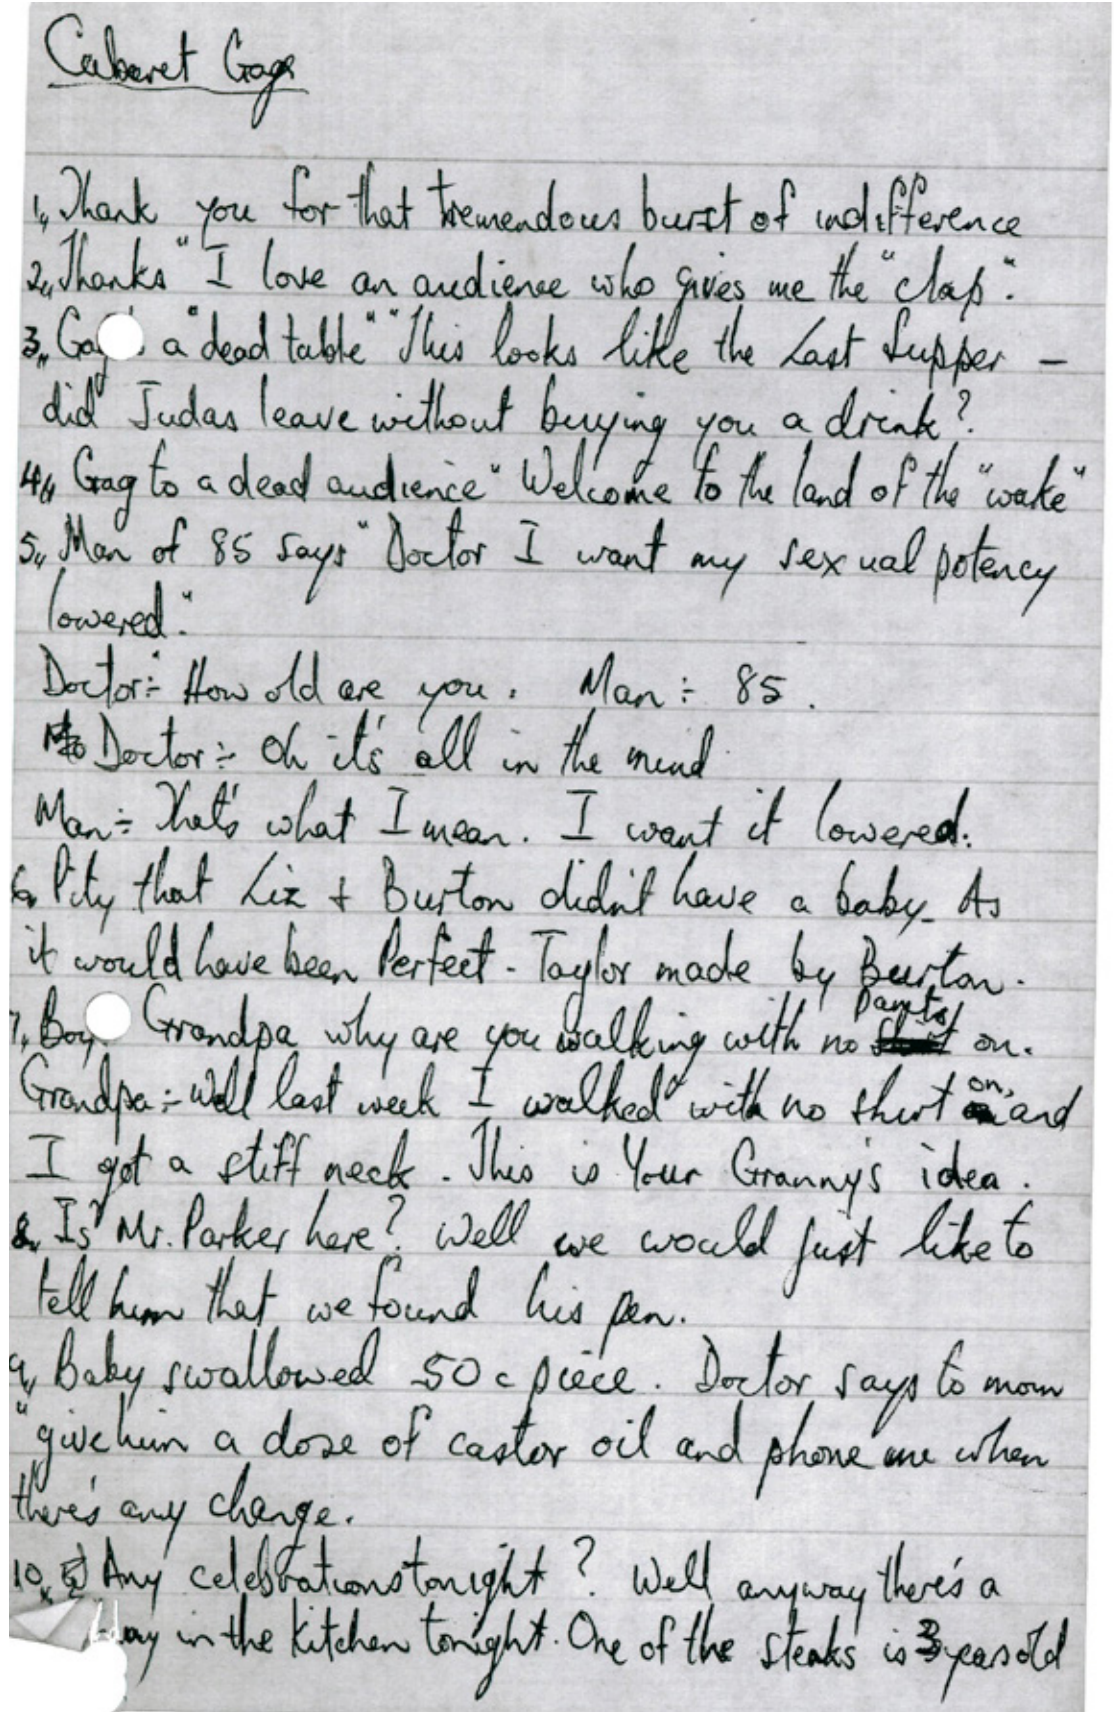 Cabaret Gags
1,, Thank you for that tremendous burst of indifference
2,, Thanks "I love an audience who gives me the "clap".
3,, Gag a "dead table" "This looks like the Last Supper -
did Judas leave without buying you a drink?
4,, Gag to a dead audience "Welcome to the land of the "wake"
5,, Man of 85 says "Doctor I want my sexual potency
lowered".
Doctor:- How old are you. Man:- 85.
Doctor:- Oh it's all in the mind
Man:- That's what I mean. I want it lowered.
6,, Pity that Liz + Burton didn't have a baby - As
it would have been Perfect - Taylor made by Burton.
7,, Boy Grandpa why are you walking with no pants on.
Grandpa:- Well last week I walked with no shirt on, and
I got a stiff neck. This is Your Granny's idea.
8,, Is Mr. Parker here? Well we would just like to
tell him that we found his pen.
9,, Baby swallowed 50c piece. Doctor says to mom
"give him a dose of castor oil and phone me when
there's any change.
10,, Any celebrations tonight? Well anyway there's a
in the kitchen tonight. One of the steaks is 3 years old